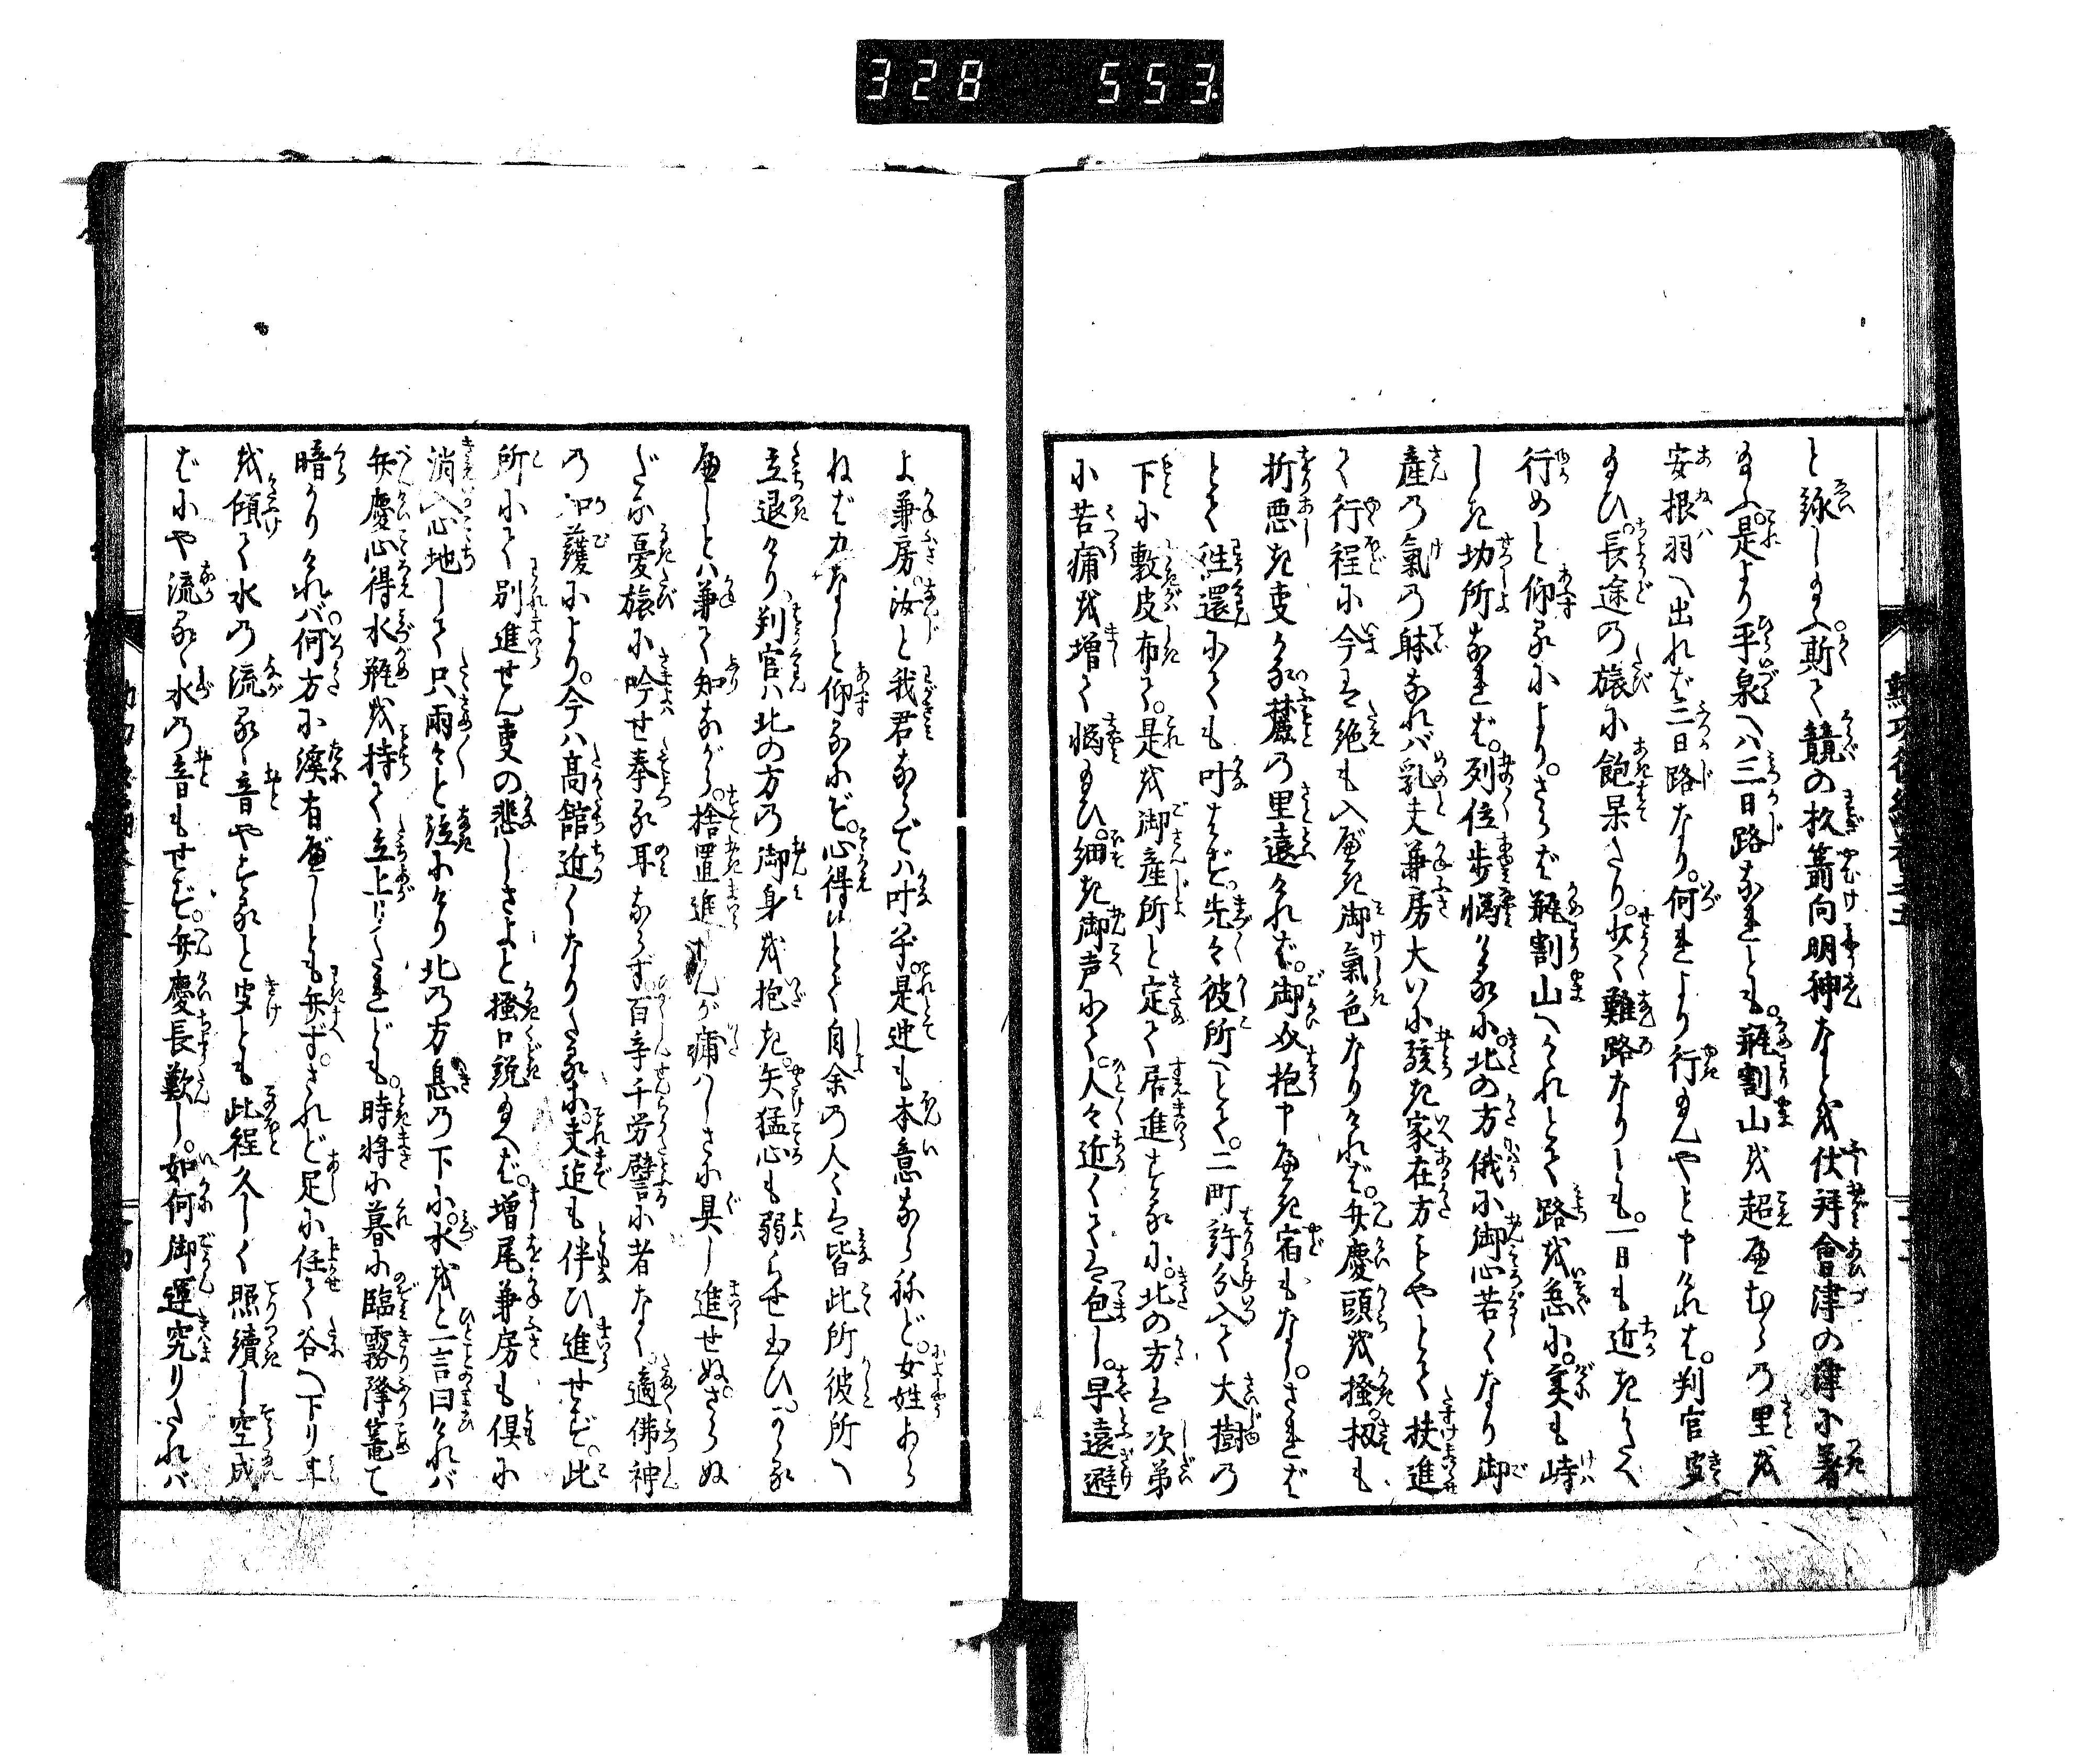 328 553
と詠し給ふ。斯て鬚の杖箭向明神なんどを伏拝會津の津に着
給ふ。是より平泉へハ三日路なれども。瓶割山を超べむらの里を
安根羽へ出れば二日路なり。何れより行んやと申ければ。判官聞
給ひ。長途の旅に飽果たり。少々難路なりとも。一日も近きかたへ
行めと仰るによりさらば瓶割山へかれとて路を急に。実も峙
しき切所なれば。列位歩悩ける小。北の方俄に御心苦くなり御
産の氣の躰なれバ乳夫兼房大いに駭き家在方もやとて扶進
て行程に今は絶も入べき御氣色なりければ。弁慶頭を掻。扨も
折悪き事かな麓の里遠ければ。御介抱申べき宿もなし。されば
とて徃還にても叶はず。先々彼所へとて。二町許分入て大樹の
下に敷皮布て。是を御産所と定て居進するに。北の方は次第
に苦痛を増て悩給ひ。細き御声にて。人々近くては包し。早遠避
よ兼房。汝と我君ならでハ叶ハず。是迚も本意ならねど。女姓よら
ねば力なしと仰るにぞ。心得候とて自余の人々は皆此所彼所へ
立退けり。判官ハ北の方の御身を抱き。矢猛心も弱らせ玉ひ。かゝる
べしとハ兼て知ながら。捨置進せんが痛ハしさに具し進せぬ。さらぬ
だに憂旅に吟せ奉る耳ならず。百辛千労譬に者なく。適佛神
の加護により。今ハ高館近くなりたるに。夫迄も伴ひ進せず。此
所にて別進せん事の悲しさよと掻口説給へば。増尾兼房も倶に
消入心地して只雨々と泣にけり北の方息の下に。水をと一言曰ければ
弁慶心得水瓶を持て立上りたれども。時将に暮に臨霧降篭て
暗かりけれバ。何方に溪有べしとも弁ず。されど足に任て谷へ下り耳
を傾て水の流るゝ音やすると聞ども此程久しく照續し空成
ばにや流るゝ水の音もせず。弁慶長歎し。如何御運究りたれバ